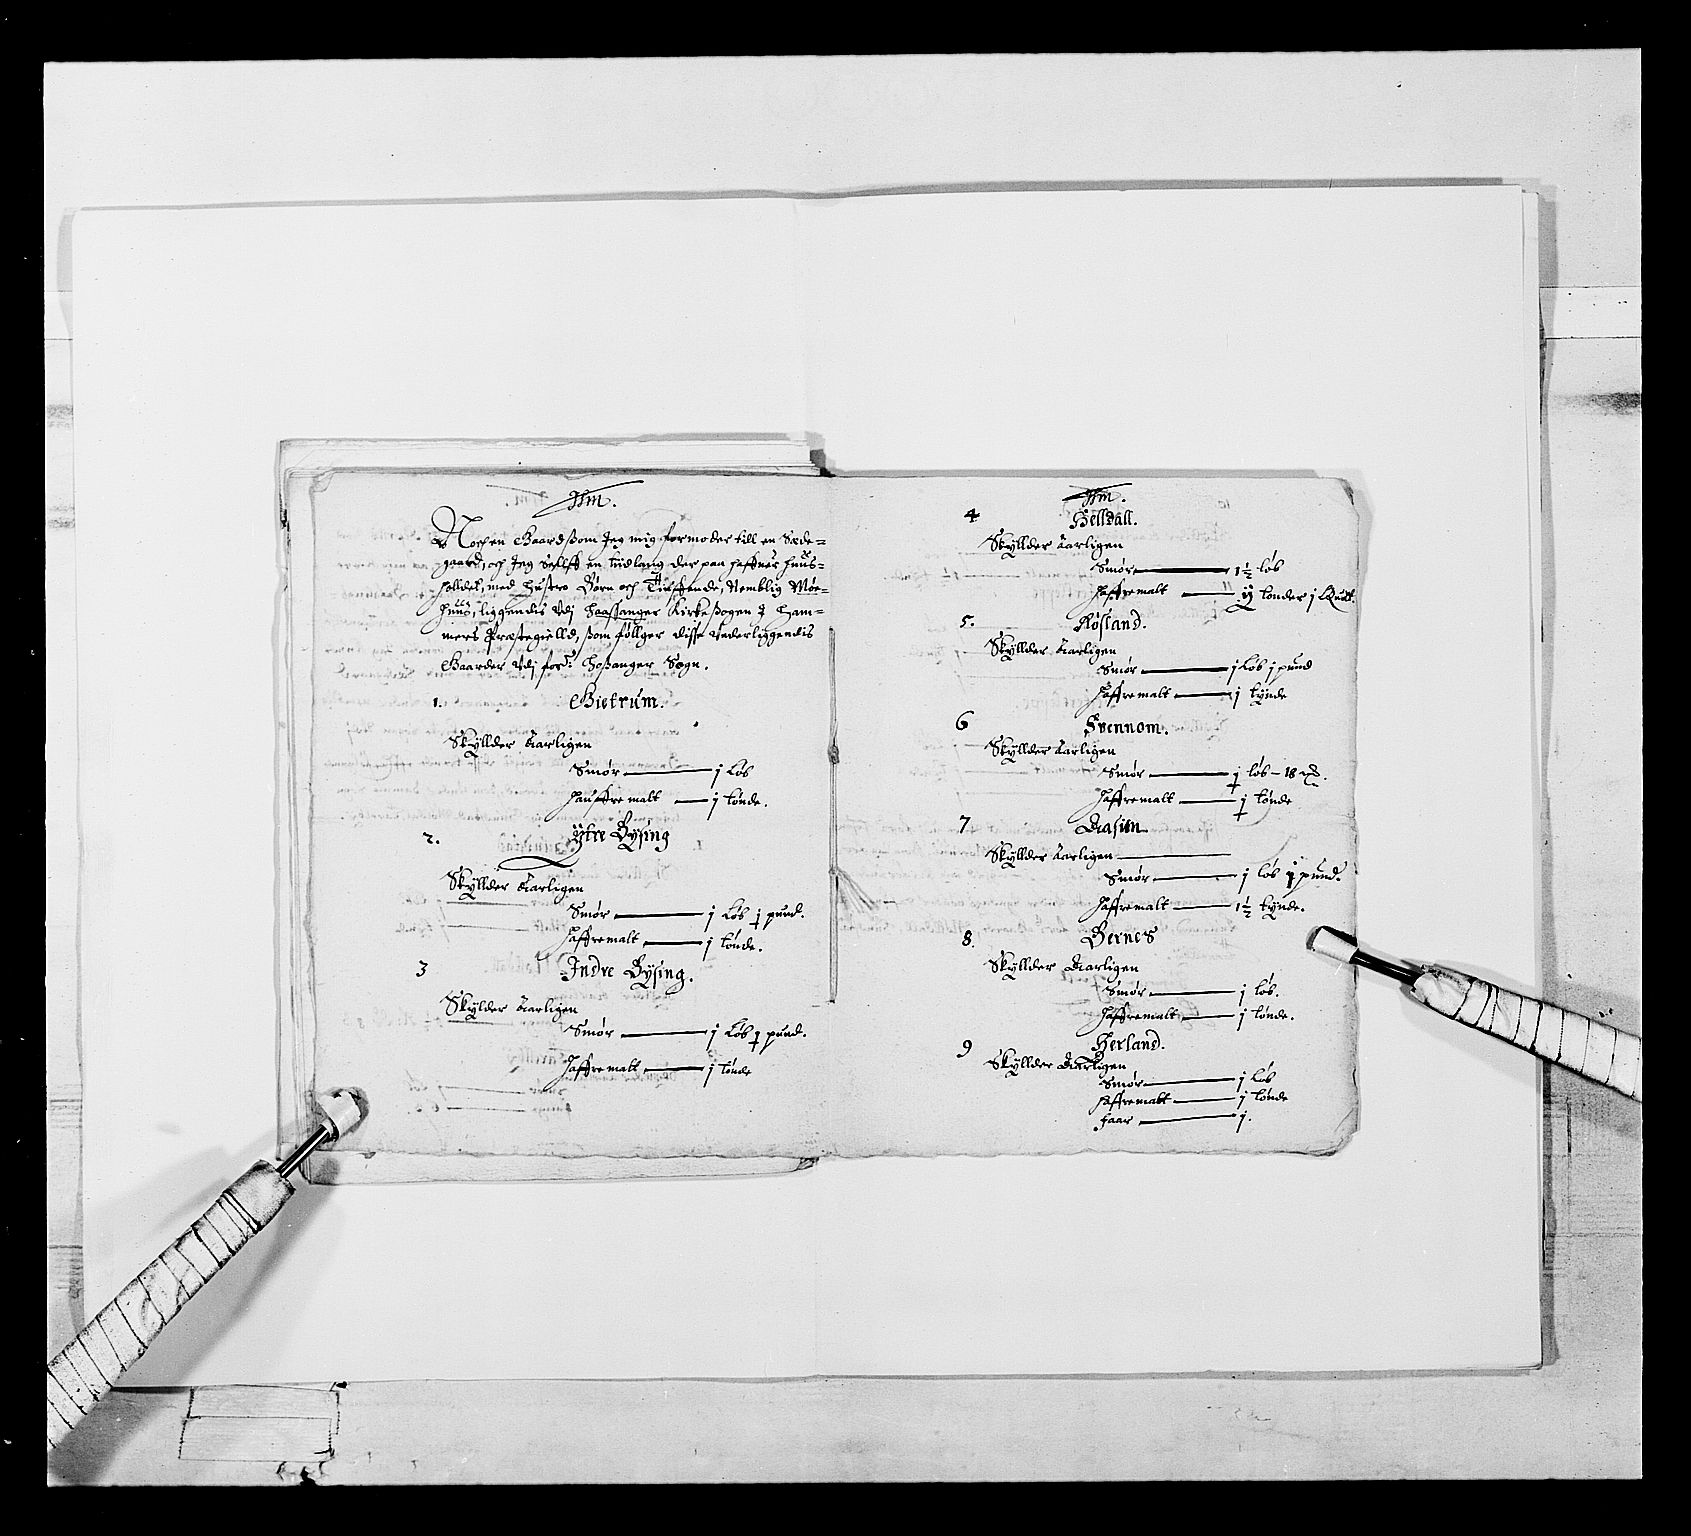 Item.
Noch en Gaard ßom Jeg mig formoder till en Sæde=
gaard, och Jeg Sellff en tiidlang der paa haffuer huus=
holdet, med Hustro Børn och Tiuffende, Nemblig Møe=
huus, liggendis Vdj Haassanger Kirke ßogen j Ham=
mers Præstegielld, ßom føllger disse Vnderliggendis
Gaarder Vdj for: Hoßanger Sogn.
1. Gietrum.
Skyllder Aarligen
Smør — j Løb
Hauffremalt — j tønde.
2. Ytre Bysing
Skyllder Aarligen
Smør — j Løb j pund.
Haffremalt — j tønde.
3 Indre Bysing.
Skylder Aarligen
Smør — j Løb j pund.
Haffremalt — j tønde
Item.
4 Helldall.
Skyllder Aarligen
Smør — 1½ løb
Haffremalt — ij tønder j
5. Røsland.
Skyllder Aarligen
Smør — j Løb j pund
Haffremalt — j tynde
6 Svennom.
Skyllder Aarligen
Smør — j løb – 18
Haffremalt — j tønde
7
Skyllder Aarligen —
Smør — j løb j pund.
Haffremalt — 1½ tynde.
8. Bernes
Skyllder Aarligen
Smør — j løb.
Haffremalt — j tønde.
9 Herland.
Skyllder Aarligen
Smør — j Løb
Haffremalt — j tønde
Faar — j.